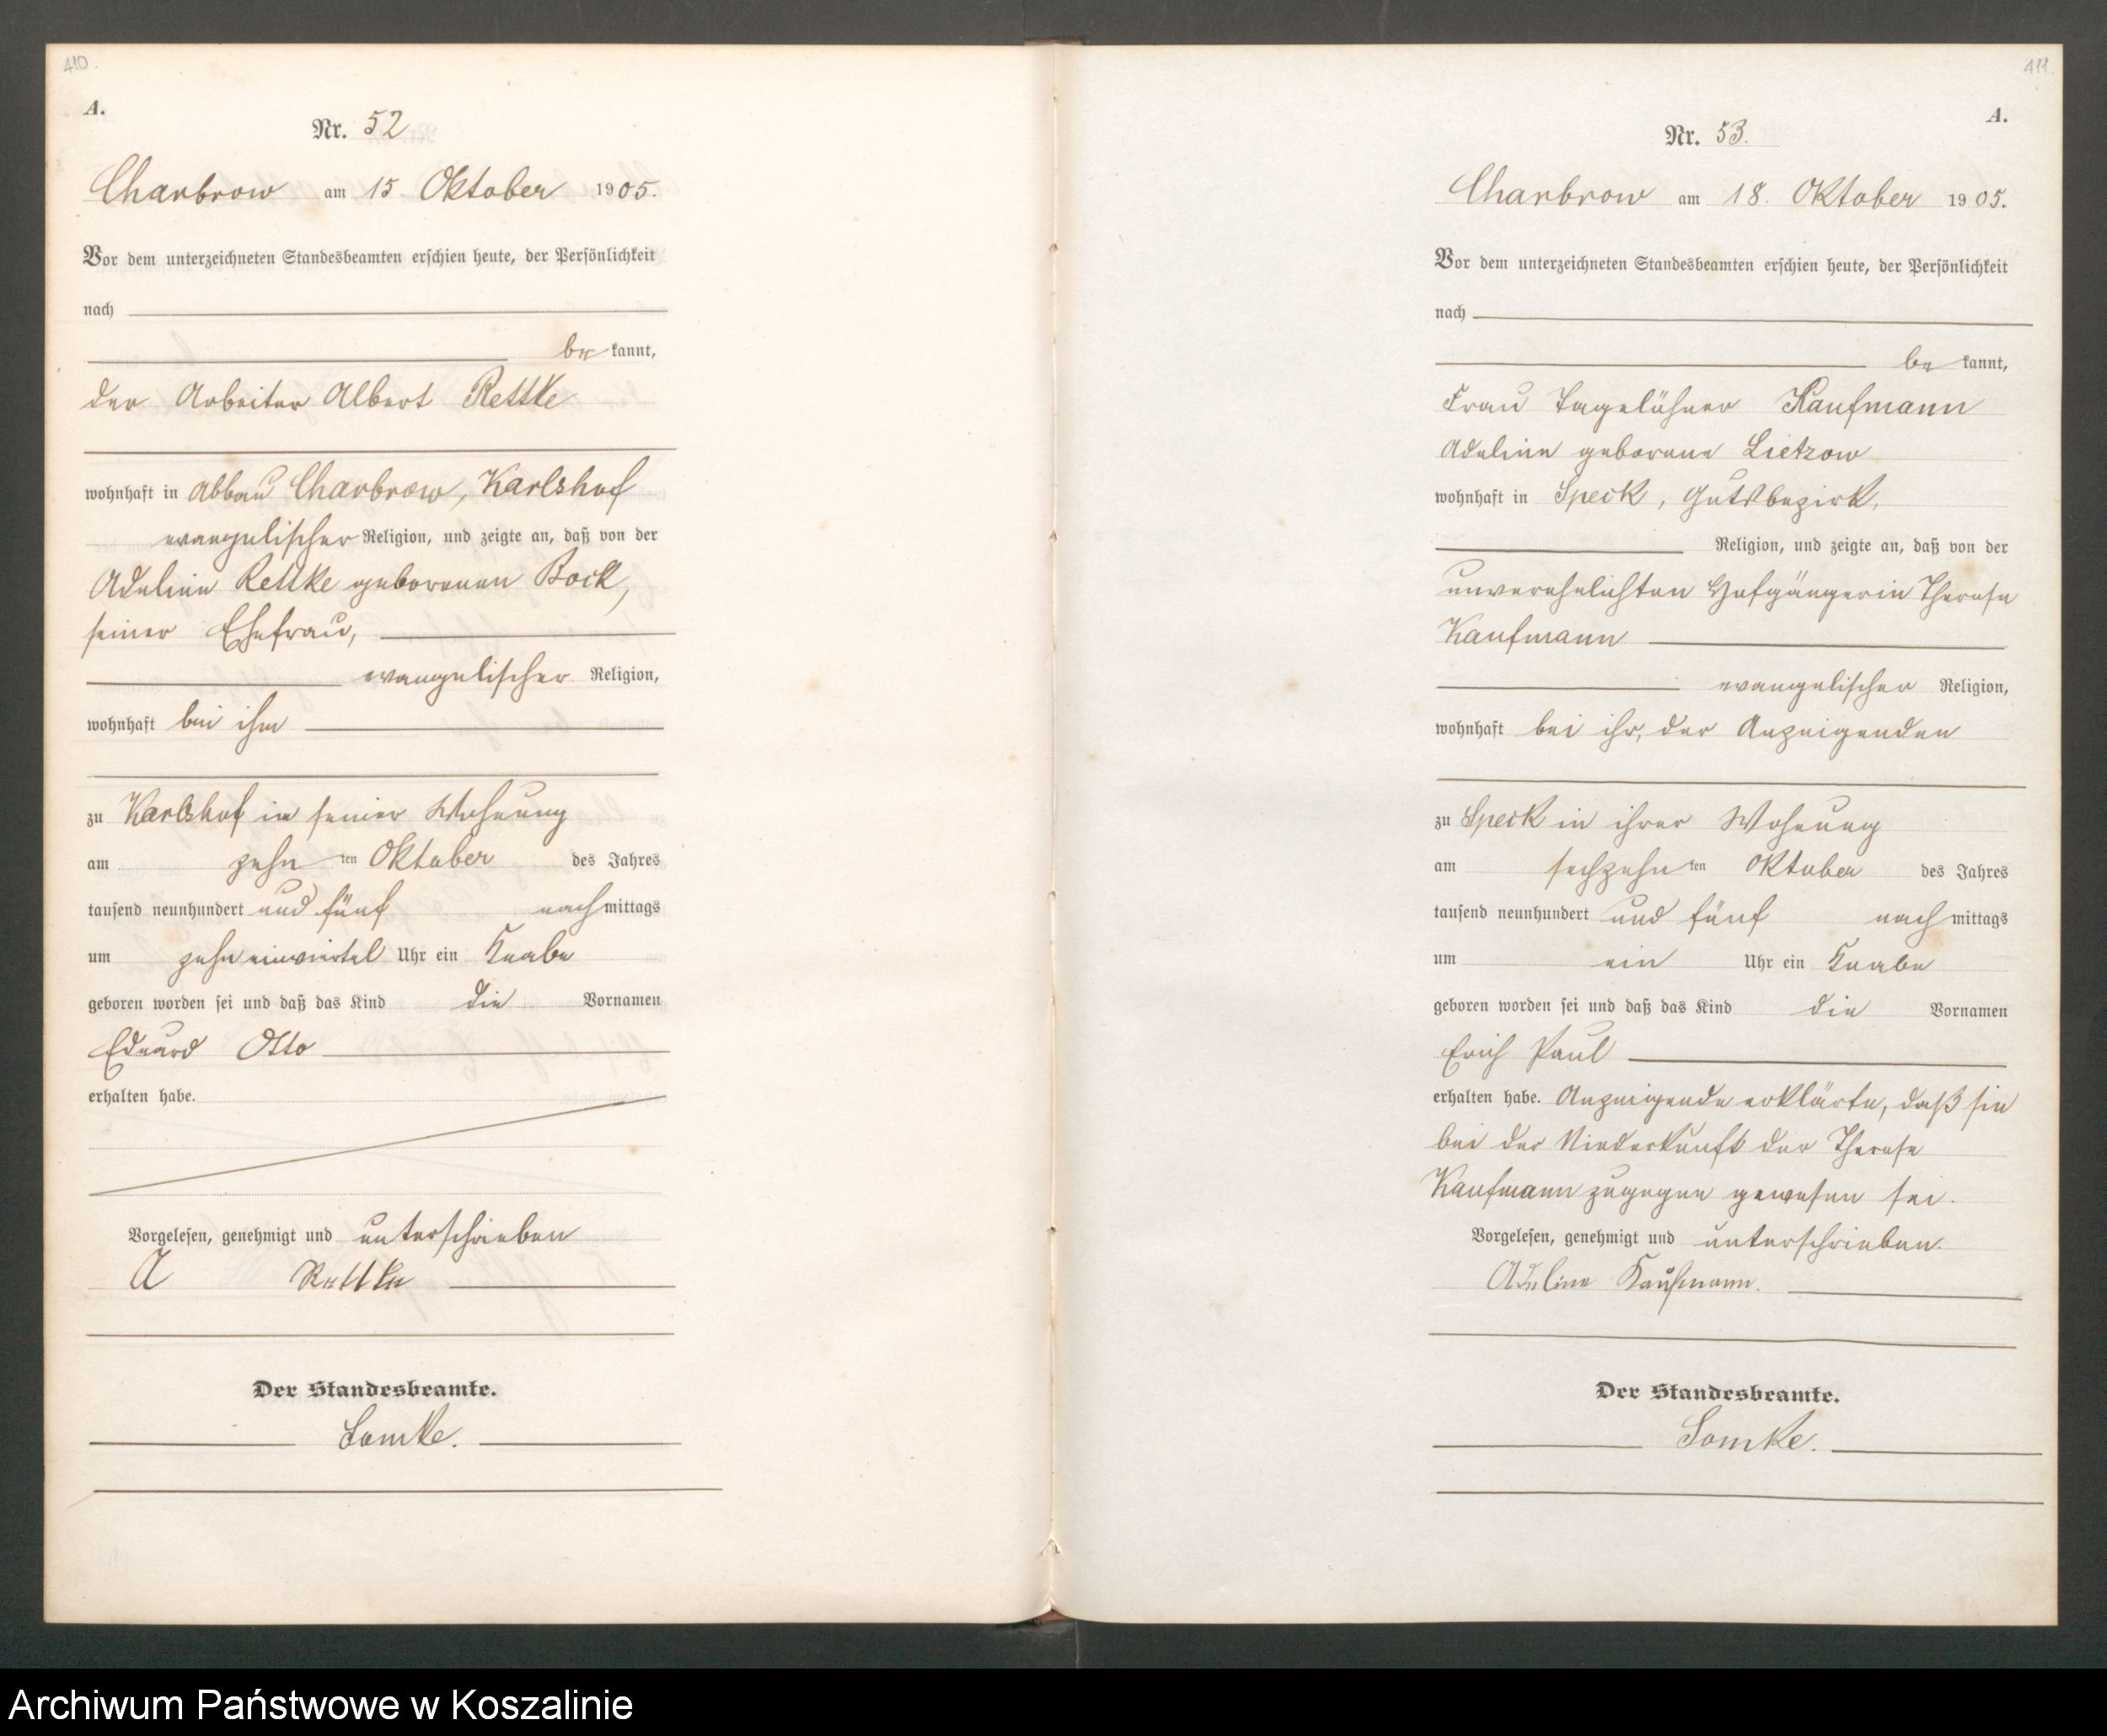 410.
A.
Nr. 52
Charbrow am 15 Oktober 1905.
Vor dem unterzeichneten Standesbeamten erschien heute, der Persönlichkeit
nach
bekannt,
der Arbeiter Albert Rettke
wohnhaft in Abbau Charbrow, Karlshof
evangelischer Religion, und zeigte an, daß von der
Adeline Rettke geborenen Bock,
seiner Ehefrau,
evangelischer Religion,
wohnhaft bei ihm
zu Karlshof in seiner Wohnung
am zehnten Oktober des Jahres
tausend neunhundert und fünf nachmittags
um zehn einviertel Uhr ein Knabe
geboren worden sei und daß das Kind die Vornamen
Eduard Otto
erhalten habe.
Vorgelesen, genehmigt und unterschrieben
A Rettke
Der Standesbeamte.
Lomke.
411.
A.
Nr. 53.
Charbrow am 18. Oktober 1905.
Vor dem unterzeichneten Standesbeamten erschien heute, der Persönlichkeit
nach
bekannt,
Frau Tagelöhner Kaufmann
Adeline geborene Lietzow
wohnhaft in Speck, Gutsbezirk,
Religion, und zeigte an, daß von der
unverehelichten Hofgängerin Therese
Kaufmann
evangelischer Religion,
wohnhaft bei ihr, der Anzeigenden
zu Speck in ihrer Wohnung
am sechzehnten Oktober des Jahres
tausend neunhundert und fünf nachmittags
um ein Uhr ein Knabe
geboren worden sei und daß das Kind die Vornamen
Erich Paul
erhalten habe. Anzeigende erklärte, daß sie
bei der Niederkunft der Therese
Kaufmann zugegen gewesen sei.
Vorgelesen, genehmigt und unterschrieben.
Adeline Kaufmann.
Der Standesbeamte.
Lomke.
Archiwum Państwowe w Koszalinie